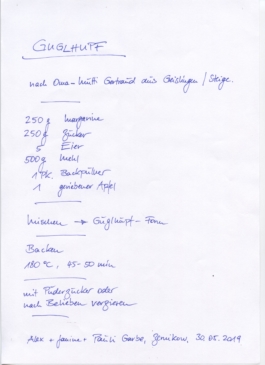 GUGLHUPF
nach Oma-Mutti Gertraud aus Geislingen / Steige.
250 g Margarine
250 g Zucker
5 Eier
500 g Mehl
1 Pk. Backpulver
1 geriebener Apfel
Mischen → Guglhupf-Form
Backen
180 °C, 45-50 min
mit Puderzucker oder
nach Belieben verzieren
Alex + Janine + Pauli Garbe, 30.05.2019